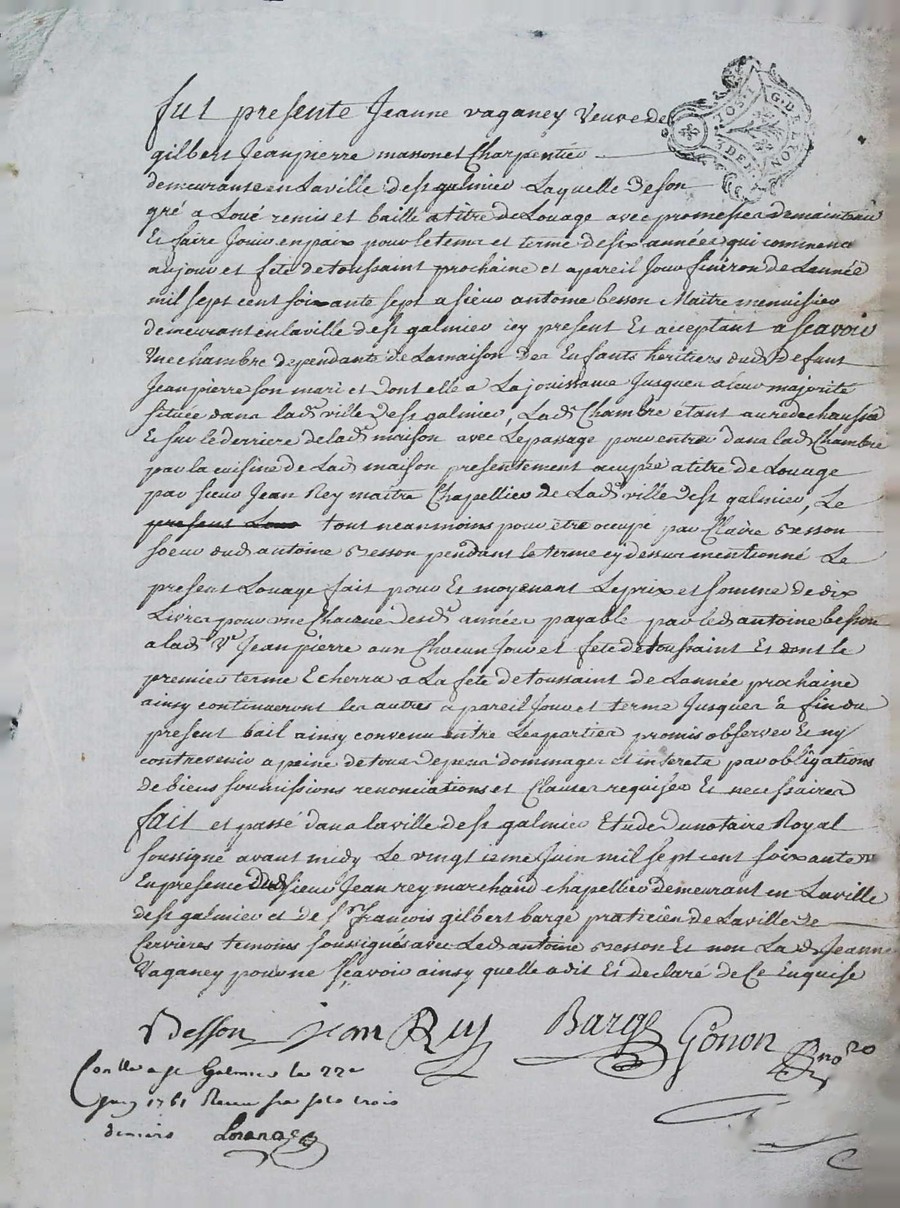 fut presente Jeanne vaganey Veuve de
gilbert Jeanpierre masson et Charpentier
demeurante en Laville de st galmier Laquelle de son
gré a Loué remis et baillé a titre de Louage avec promesses de maintenir
Et faire Jouir en paix pour le tems et terme de six années qui commenc
au jour et fête de toussaint prochaine et a pareil Jour finiron de Lannée
mil sept cent soixante sept a sieur antoine besson Maitre menuisier
demeurant en laville de st galmier icy present Et acceptant a scavoir
Une chambre dependante de Lamaison des Enfants heritiers dud defunt
Jeanpierre son mari et dont elle a La jouissance Jusques a leur majorité
située dans lade ville de st galmier, Lade Chambre étant au rédechaussée
Et sur le derriere de lade maison avec Lepassage pour entrer dans lade Chambre
par la cuisine de Lade maison presentement occupée a titre de Louage
par sieur Jean Rey maitre Chapellier de Lade ville de st galmier, Le
present Loua tout neanmoins pour être occupé par Claire Besson
soeur dud antoine Besson pendant le terme cy dessus mentionné Le
present Louage fait pour Et moyenant Leprix et somme de dix
Livres pour une Chacune desdes années payable par led antoine besson
a lade Ve Jeanpierre aux Chacun Jour et fete de toussaint Et dont le
premier terme Echerra a La fete de toussaint de Lannée prochaine
ainsy continueront les autres a pareil Jour et terme Jusques à fin du
present bail ainsy convenu entre Les parties promis observer Et ny
contrevenir a peine de tous depens dommages et interets par obligations
de biens soumissions renonciations et Clauses requises Et necessaires
fait et passé dans laville de st galmier Etude du notaire Royal
soussigné avant midy Le vingtieme Juin mil sept cent soixante un
En presence dud sieur Jean rey marchand chapellier demeurant en Laville
de st galmier et de sr François gilbert barge praticien de Laville de
Cervieres temoins soussignés avec Led antoine Besson Et non La de Jeanne
Vaganey pour ne scavoir ainsy quelle a dit Et declaré de Ce Enquise
Besson Jean Rey Barge Gonon Rno
Conllé a st Galmier le 22e
Juin 1761 Receu six sols trois
deniers
G. DE LION